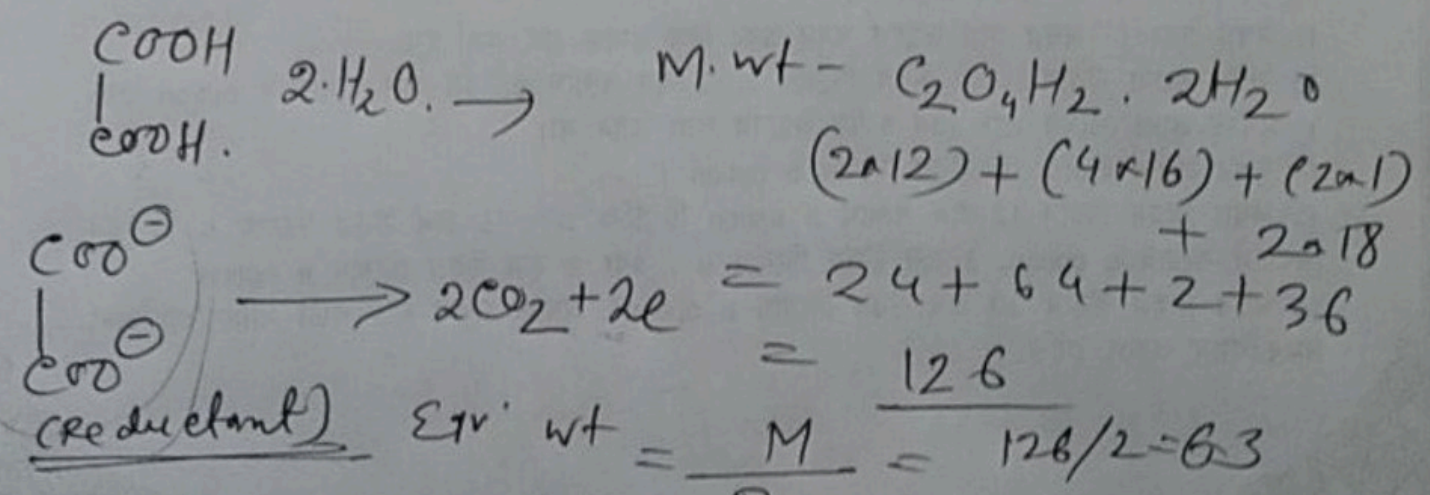 COOH
| 2.H₂O. → M.wt - C₂O₄H₂ . 2H₂O
COOH.
(2×12) + (4×16) + (2×1)
+ 2×18
COO⊖
| → 2CO₂ + 2e = 24 + 64 + 2 + 36
COO⊖
= 126
(Reductant) Eqv. wt = M = 126/2 = 63